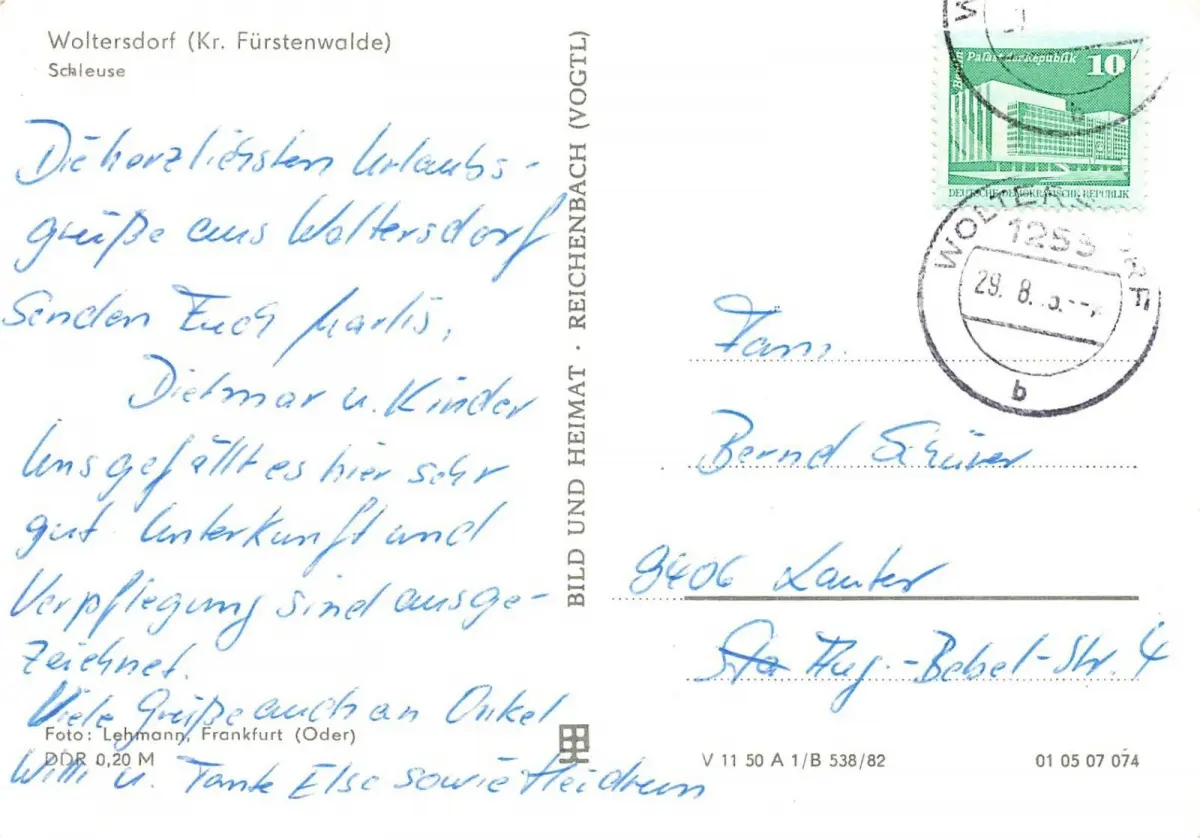 Woltersdorf (Kr. Fürstenwalde)
Schleuse
Die herzlichsten Urlaubs-
grüße aus Woltersdorf
senden Euch Marlis,
Dietmar u. Kinder
Uns gefällt es hier sehr
gut. Unterkunft und
Verpflegung sind ausge-
zeichnet.
Viele Grüße auch an Onkel
Willi u. Tante Else sowie Heidrun
Foto: Lehmann, Frankfurt (Oder)
DDR 0,20 M
BILD UND HEIMAT · REICHENBACH (VOGTL)
Berlin
Palast der Republik 10
DEUTSCHE DEMOKRATISCHE REPUBLIK
WOLTERSDORF
1255
29. 8.
b
Fam.
Bernd Schürer
9406 Lauter
Aug.-Bebel-Str. 4
V 11 50 A 1/B 538/82
01 05 07 074